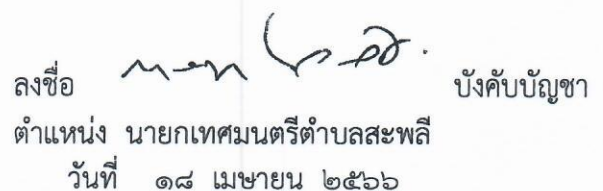 ลงชื่อ บังคับบัญชา
ตำแหน่ง นายกเทศมนตรีตำบลสะพลี
วันที่ ๑๘ เมษายน ๒๕๖๖